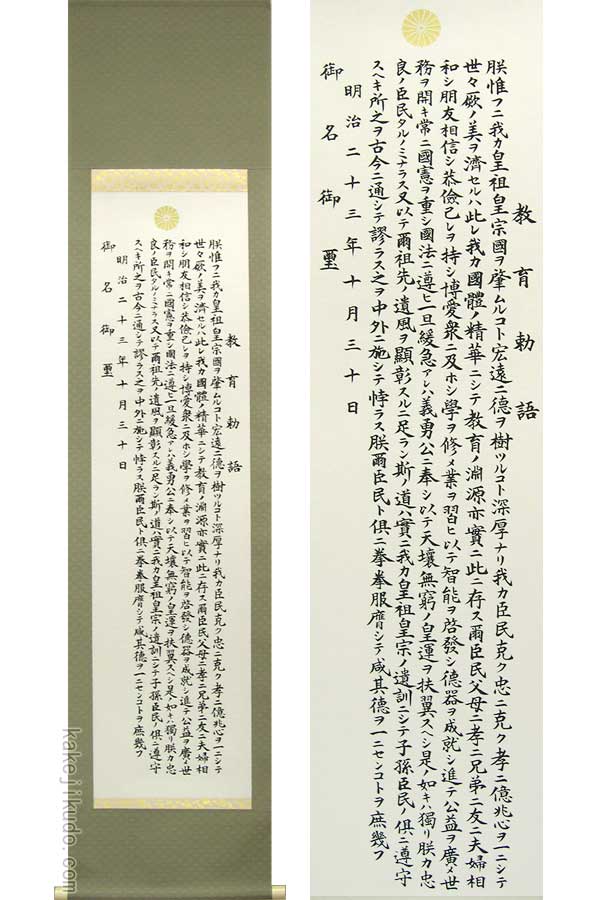 教育勅語
朕惟フニ我カ皇祖皇宗國ヲ肇ムルコト宏遠ニ德ヲ樹ツルコト深厚ナリ我カ臣民克ク忠ニ克ク孝ニ億兆心ヲ一ニシテ
世々厥ノ美ヲ濟セルハ此レ我カ國體ノ精華ニシテ教育ノ淵源亦實ニ此ニ存ス爾臣民父母ニ孝ニ兄弟ニ友ニ夫婦相
和シ朋友相信シ恭儉己レヲ持シ博愛衆ニ及ホシ學ヲ修メ業ヲ習ヒ以テ智能ヲ啓發シ德器ヲ成就シ進テ公益ヲ廣メ世
務ヲ開キ常ニ國憲ヲ重シ國法ニ遵ヒ一旦緩急アレハ義勇公ニ奉シ以テ天壤無窮ノ皇運ヲ扶翼スヘシ是ノ如キハ獨リ朕カ忠
良ノ臣民タルノミナラス又以テ爾祖先ノ遺風ヲ顯彰スルニ足ラン斯ノ道ハ實ニ我カ皇祖皇宗ノ遺訓ニシテ子孫臣民ノ俱ニ遵守
スヘキ所之ヲ古今ニ通シテ謬ラス之ヲ中外ニ施シテ悖ラス朕爾臣民ト俱ニ拳拳服膺シテ咸其德ヲ一ニセンコトヲ庶幾フ
明治二十三年十月三十日
御名御璽
教育勅語
朕惟フニ我カ皇祖皇宗國ヲ肇ムルコト宏遠ニ德ヲ樹ツルコト深厚ナリ我カ臣民克ク忠ニ克ク孝ニ億兆心ヲ一ニシテ
世々厥ノ美ヲ濟セルハ此レ我カ國體ノ精華ニシテ教育ノ淵源亦實ニ此ニ存ス爾臣民父母ニ孝ニ兄弟ニ友ニ夫婦相
和シ朋友相信シ恭儉己レヲ持シ博愛衆ニ及ホシ學ヲ修メ業ヲ習ヒ以テ智能ヲ啓發シ德器ヲ成就シ進テ公益ヲ廣メ世
務ヲ開キ常ニ國憲ヲ重シ國法ニ遵ヒ一旦緩急アレハ義勇公ニ奉シ以テ天壤無窮ノ皇運ヲ扶翼スヘシ是ノ如キハ獨リ朕カ忠
良ノ臣民タルノミナラス又以テ爾祖先ノ遺風ヲ顯彰スルニ足ラン斯ノ道ハ實ニ我カ皇祖皇宗ノ遺訓ニシテ子孫臣民ノ俱ニ遵守
スヘキ所之ヲ古今ニ通シテ謬ラス之ヲ中外ニ施シテ悖ラス朕爾臣民ト俱ニ拳拳服膺シテ咸其德ヲ一ニセンコトヲ庶幾フ
明治二十三年十月三十日
御名御璽
kakejikudo.com